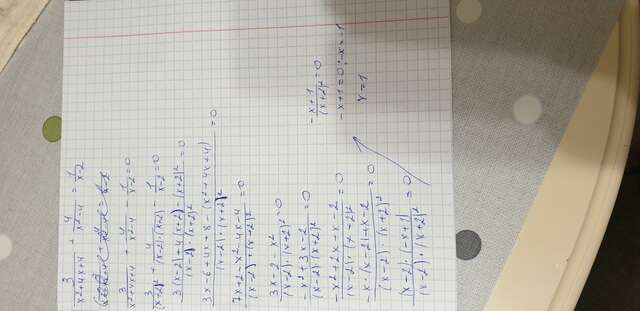 3/(x²+4x+4) + 4/(x²-4) = 1/(x-2)
3/(x²+4x+4) + 4/(x²-4) - 1/(x-2) = 0
3/(x+2)² + 4/((x-2)(x+2)) - 1/(x-2) = 0
(3(x-2)+4(x+2)-(x+2)²)/((x-2)·(x+2)²) = 0
(3x-6+4x+8-(x²+4x+4))/((x-2)·(x+2)²) = 0
(7x+2-x²-4x-4)/((x-2)·(x+2)²)
(3x-2-x²)/((x-2)·(x+2)²) = 0
(-x²+3x-2)/((x-2)·(x+2)²) = 0
(-x²+2x+x-2)/((x-2)·(x+2)²) = 0
(-x·(x-2)+x-2)/((x-2)·(x+2)²) = 0
((x-2)·(-x+1))/((x-2)·(x+2)²) = 0
(-x+1)/(x+2)² = 0
-x+1=0; -x=-1
x=1